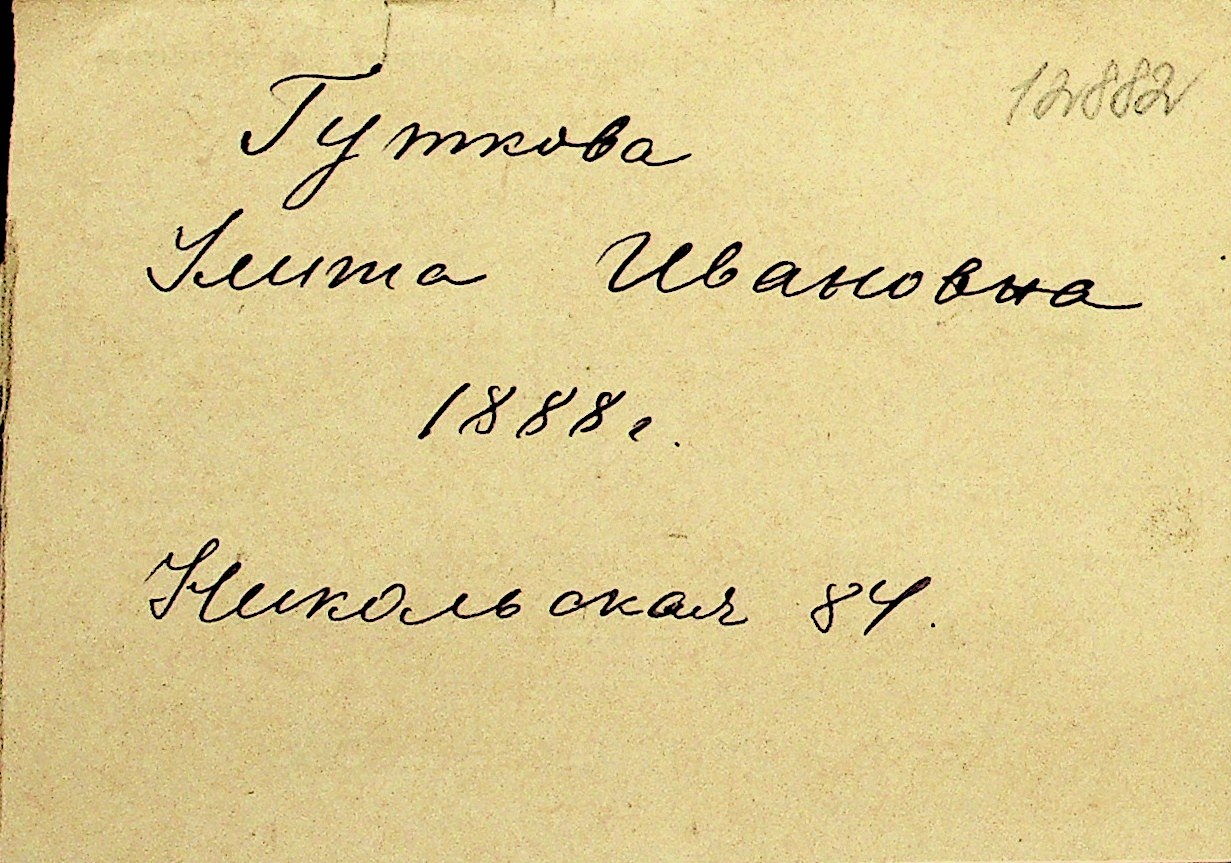 12882
Гуткова
Улита Ивановна
1888г.
Никольская 84.